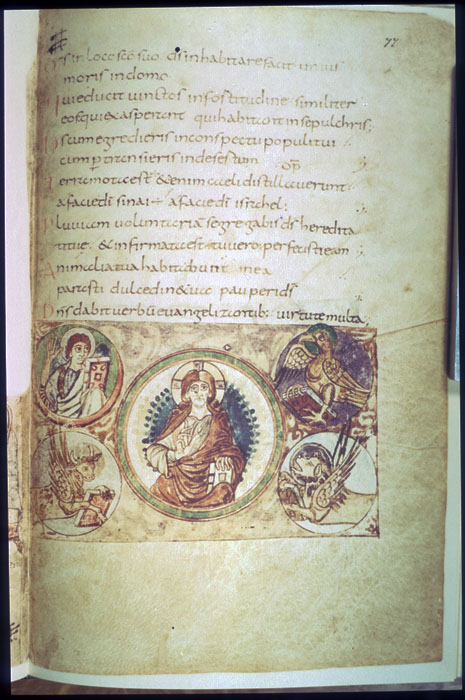 77
DS in loco sco suo ds inhabitare facit unius
moris in domo
Qui educit vinctos in fortitudine similiter
eos qui exasperant qui habitant in sepulchris;
DS cum egredieris in conspectu populi tui
cum ptransieris in desertum
Terra mota est & enim caeli distillaverunt
a facie di sinai a facie di isrhel;
Pluviam voluntariā segregabis ds heredita
ti tue & infirmata est tu vero perfecisti eam
Animalia tua habitabunt in ea
parasti dulcedine tua pauperi ds
Dns dabit verbū evangelizantib; virtute multa;